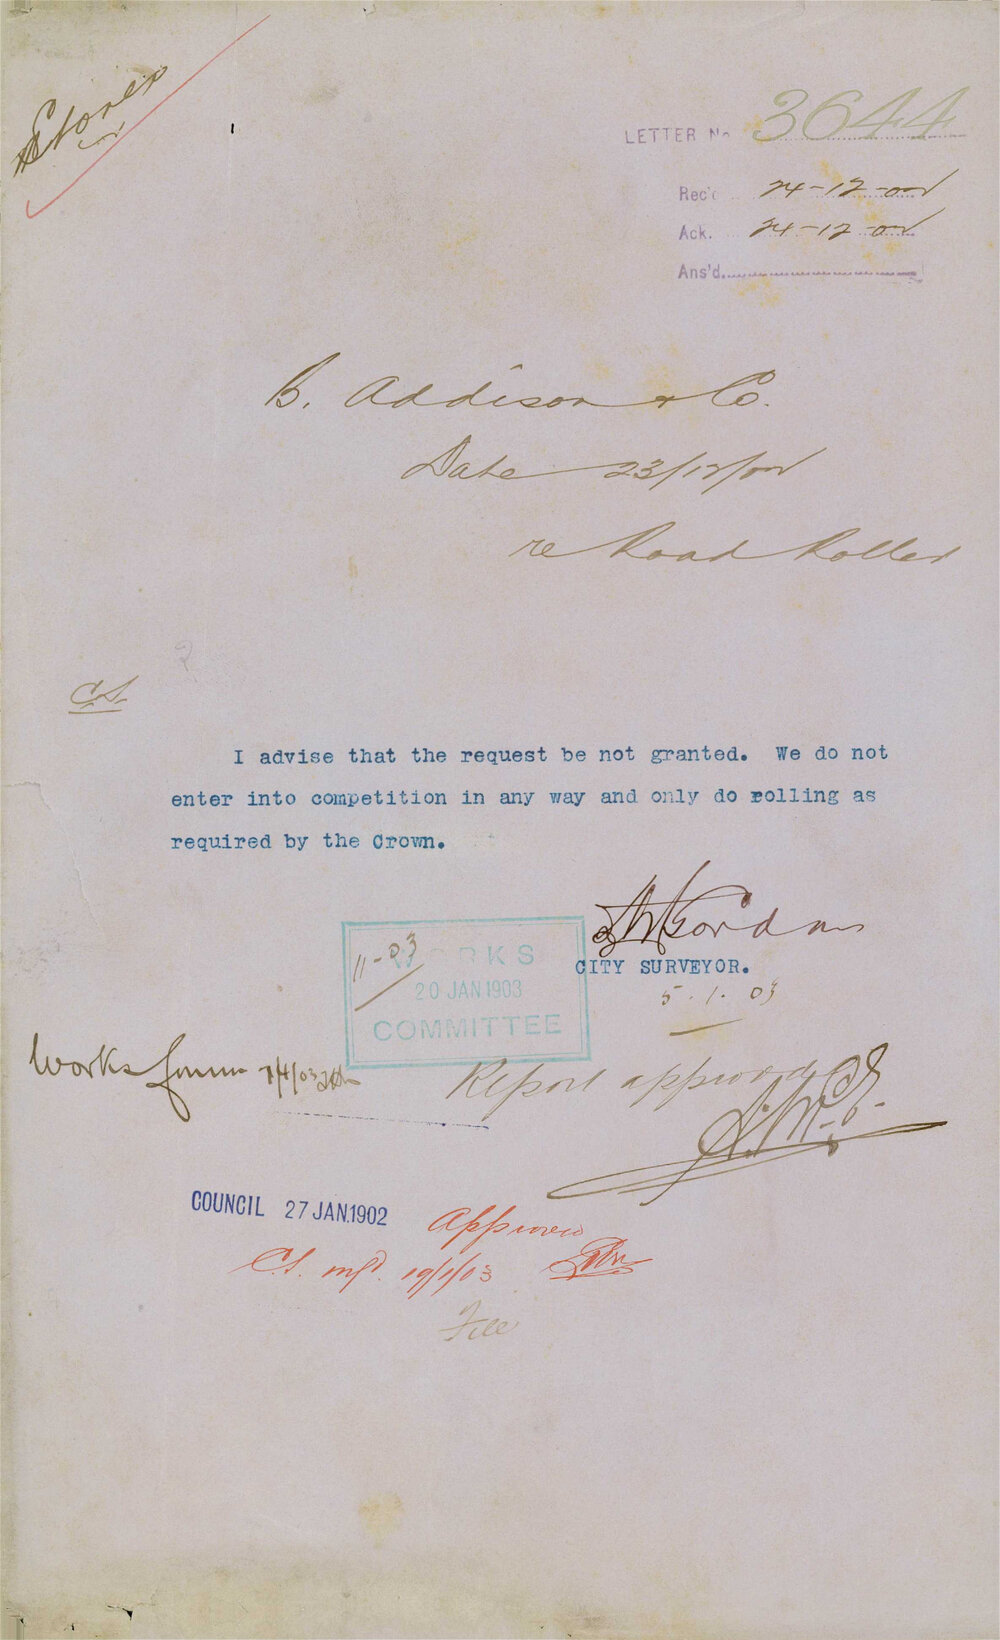 LETTER No 3644
Rec'd 24-12-02
Ack. 24-12-02
Ans'd.
B. Addison & Co.
Date 23/12/02
re Road Roller
C.S.
I advise that the request be not granted. We do not
enter into competition in any way and only do rolling as
required by the Crown.
Gordon
CITY SURVEYOR.
5.1.03
WORKS
11-03
20 JAN 1903
COMMITTEE
Works
Report approved
COUNCIL 27 JAN. 1902
Approved
C.S. mfd.
File